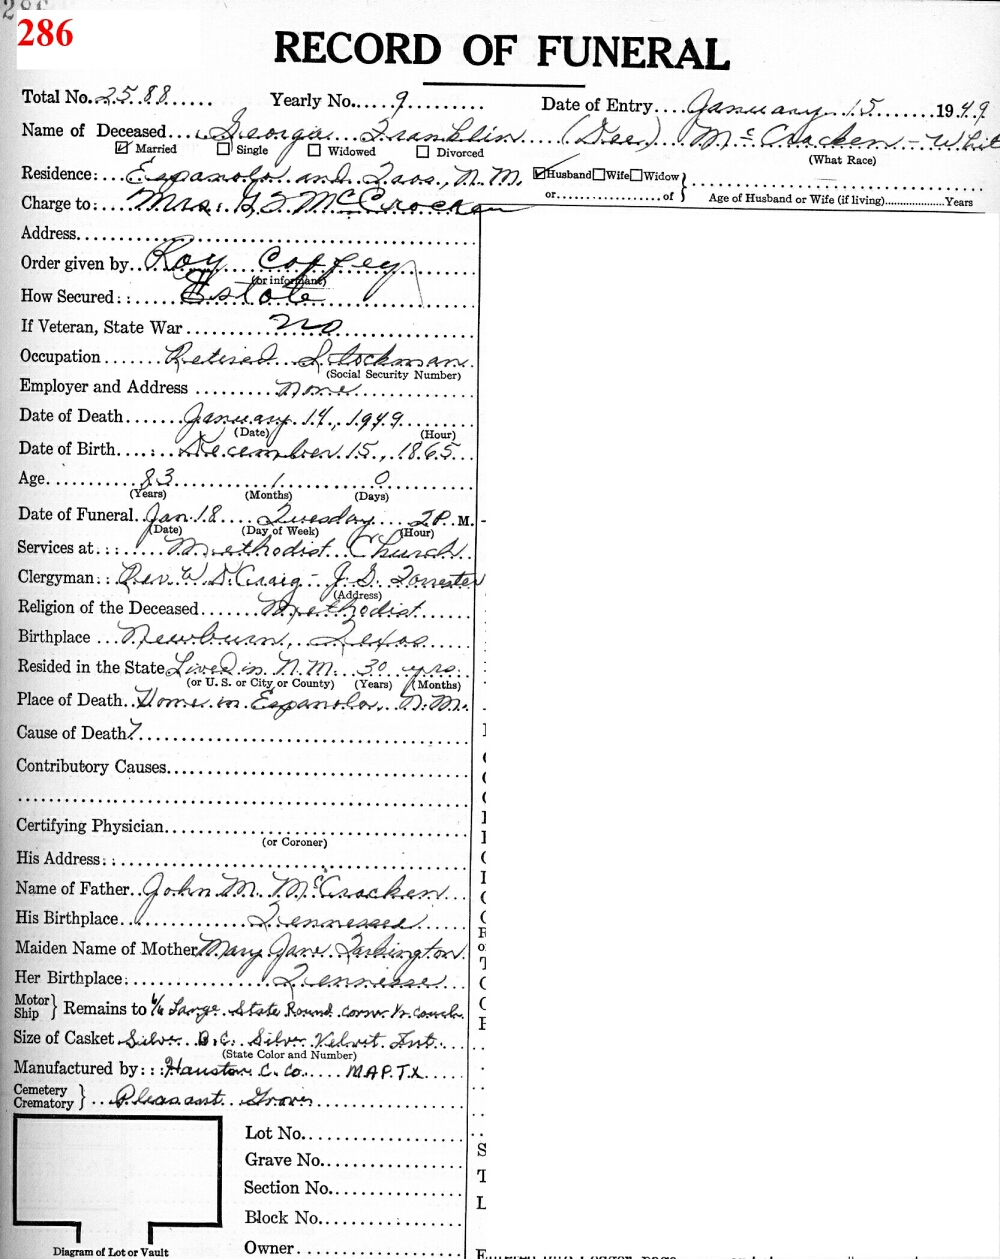 286
286
RECORD OF FUNERAL
Total No. 2588 Yearly No. 9 Date of Entry January 15 1949
Name of Deceased George Franklin (Dee) McCracken - Whit
Married Single Widowed Divorced (What Race)
Residence: Espanola and Taos, N.M. Husband Wife Widow
or of Age of Husband or Wife (if living) Years
Charge to: Mrs. G F McCrocken
Address
Order given by Roy Coffey
(or informant)
How Secured: Estate
If Veteran, State War no
Occupation Retired Stockman
(Social Security Number)
Employer and Address none
Date of Death January 14, 1949
(Date) (Hour)
Date of Birth December 15, 1865
Age 83 1 0
(Years) (Months) (Days)
Date of Funeral Jan 18 Tuesday 2 P. M.
(Date) (Day of Week) (Hour)
Services at: Methodist Church
Clergyman: Rev. W. D. Craig - J. S. Forrester
(Address)
Religion of the Deceased Methodist
Birthplace Newburn, Texas
Resided in the State Lived in N.M. 30 yrs.
(or U. S. or City or County) (Years) (Months)
Place of Death Home in Espanola, N.M.
Cause of Death ?
Contributory Causes
Certifying Physician
(or Coroner)
His Address:
Name of Father John M. McCracken
His Birthplace Tennessee
Maiden Name of Mother Mary Jane Tarkington
Her Birthplace: Tennisse
Motor Ship } Remains to 6/6 Large State Round corner
Size of Casket Silver B.C. Silver Velvet Int.
(State Color and Number)
Manufactured by: Houston C. Co. MAP. TX
Cemetery Crematory } Pleasant Grove
Lot No.
Grave No.
Section No.
Block No.
Owner
Diagram of Lot or Vault